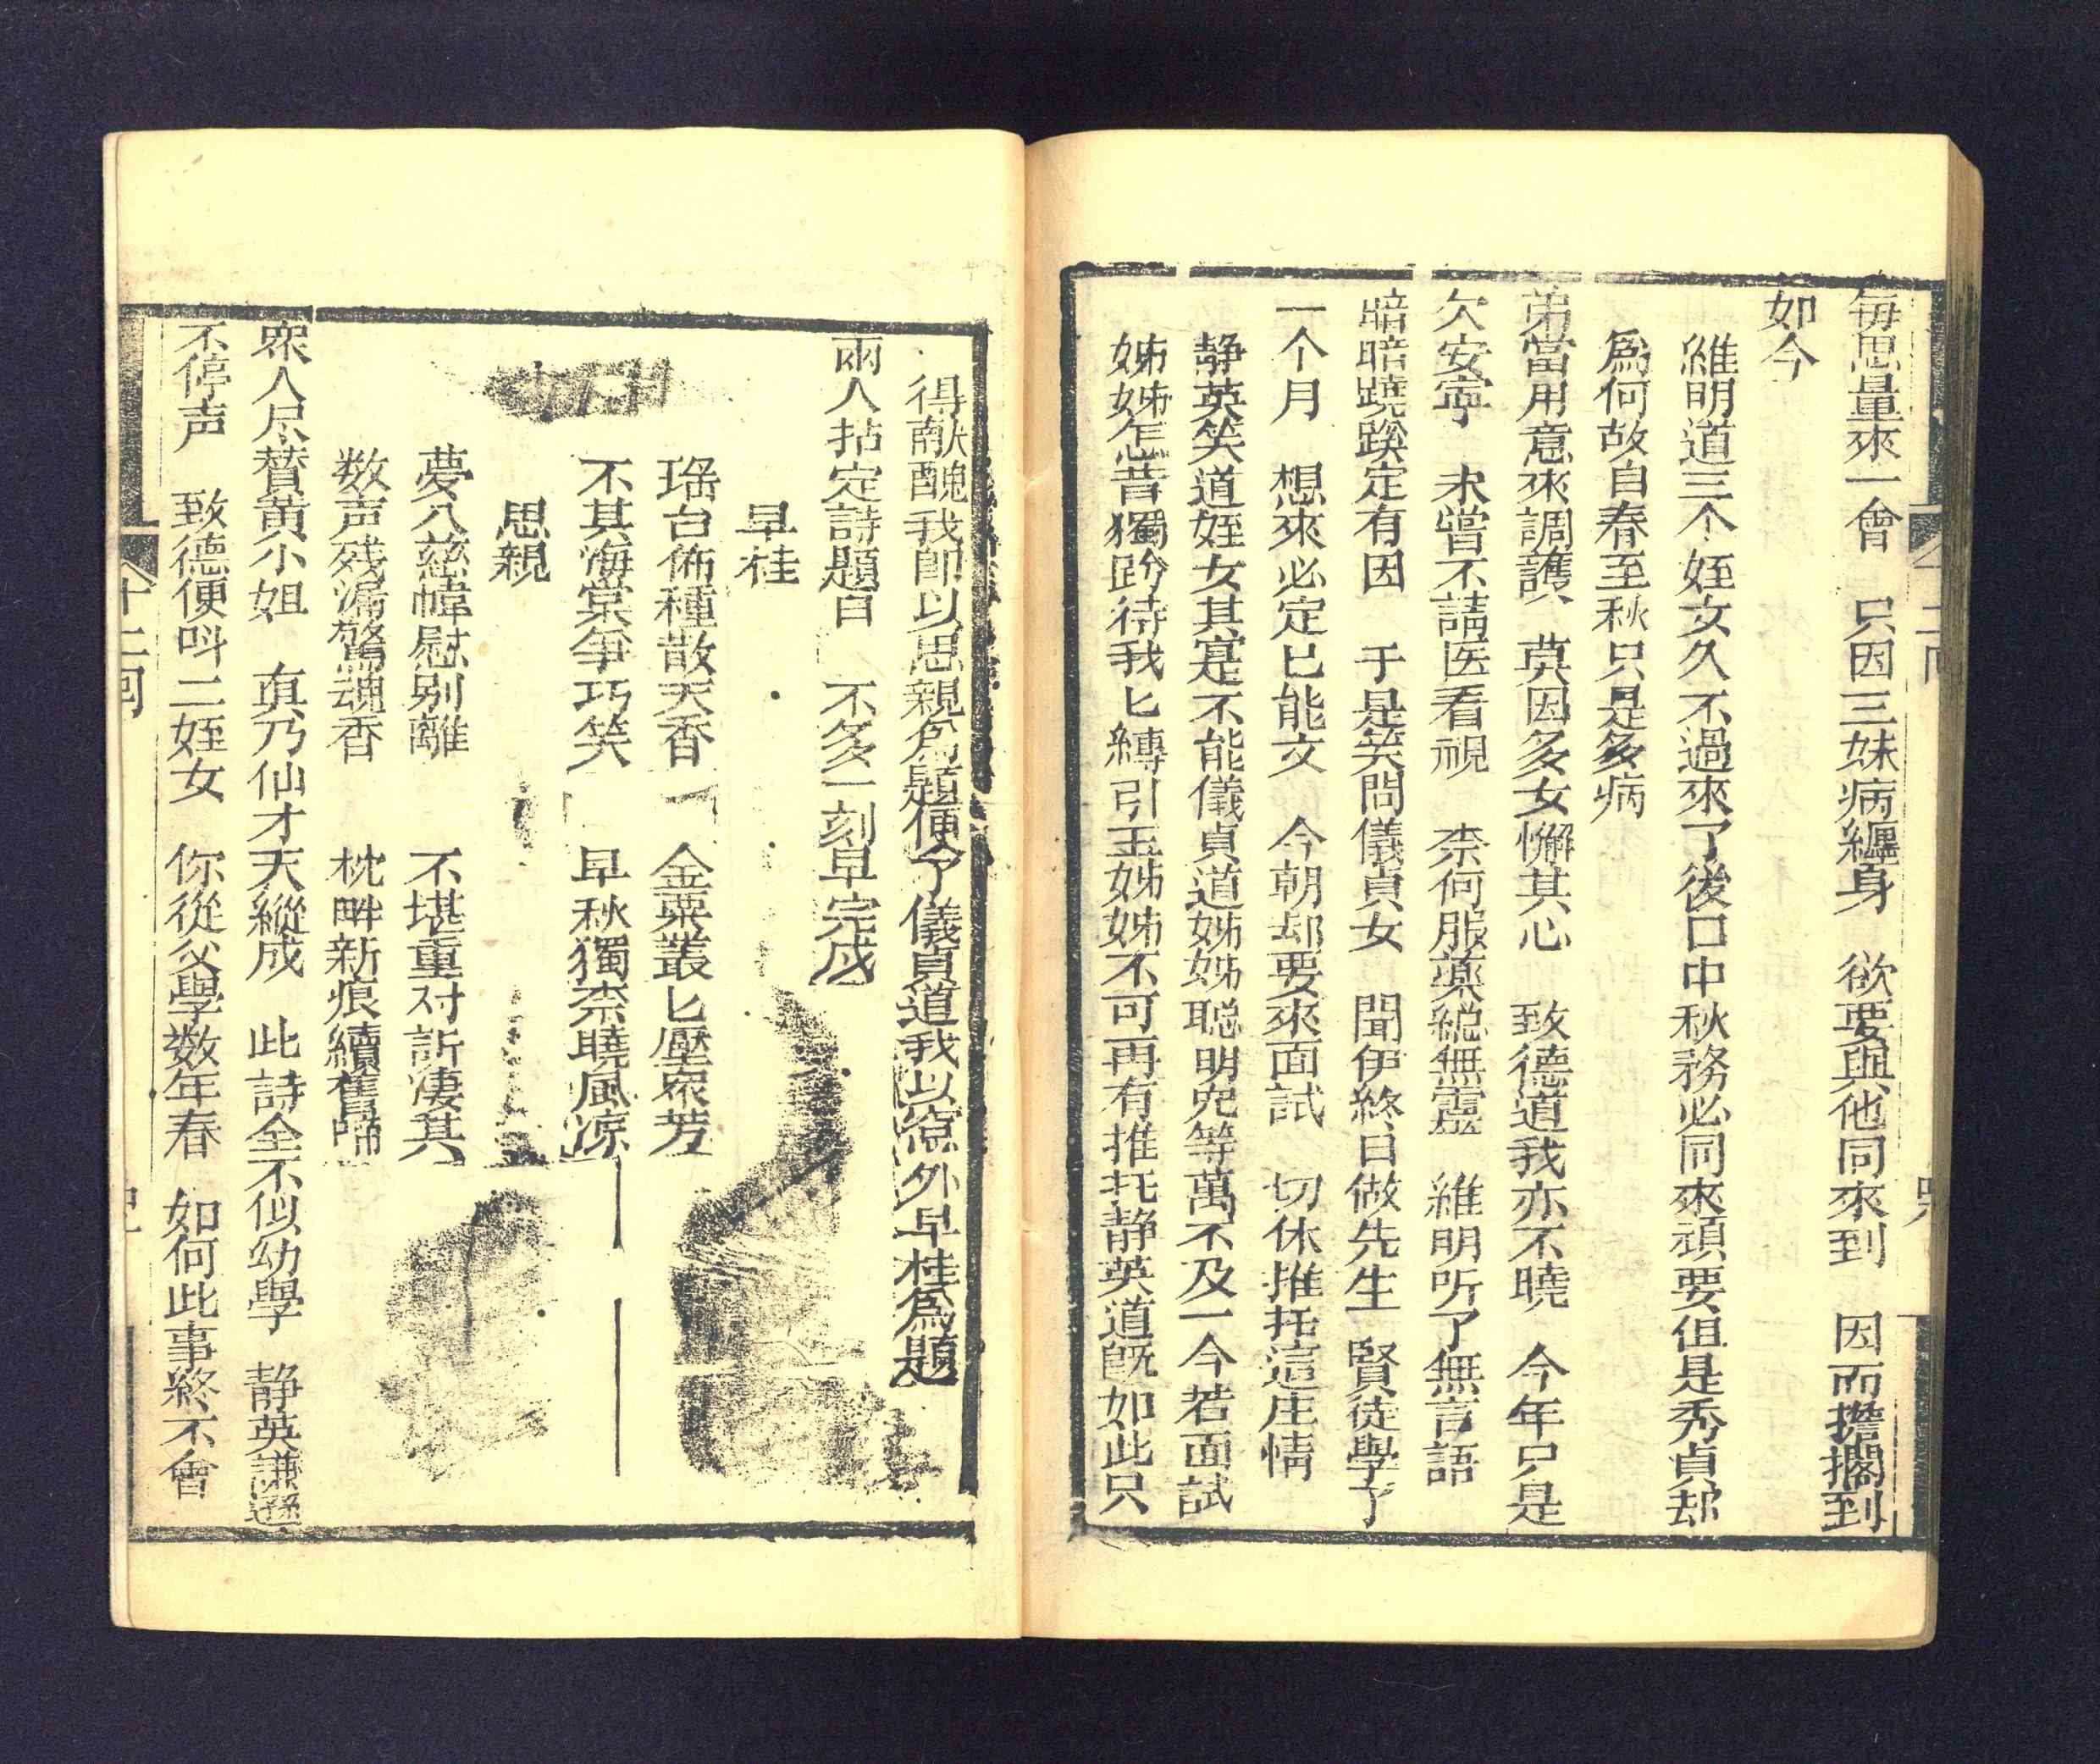 每思量來一會　只因三妹病纏身　欲要與他同來到　因而擔擱到
如今
維明道三个姪女久不過來了後日中秋務必同來頑要但是秀貞却
爲何故自春至秋只是多病
弟當用意來調護　莫因多女懈其心　致德道我亦不曉　今年只是
欠安寧　未曾不請医看視　柰何服藥總無靈　維明听了無言語
暗暗蹺蹊定有因　于是笑問儀貞女　聞伊終日做先生　賢徒學了
一个月　想來必定已能文　今朝却要來面試　切休推托這庄情
静英笑道姪女其寔不能儀貞道姊姊聪明兒等萬不及一今若面試
姊姊怎昔獨跨待我匕轉引玉姊姊不可再有推托静英道既如此只
得献醜我卽以思親爲題便令儀貞道我以窓外早桂爲題
兩人拈定詩題目　不多一刻早完成
早桂
瑶台佈種散天香　金粟叢匕壓衆芳
不其海棠爭巧笑　早秋獨柰曉風凉
思親
夢入慈幃慰别離　不堪重对訴凄其
数声残漏驚魂香　枕畔新痕續舊啼
衆人尽贊黄小姐　真乃仙才天縱成　此詩全不似幼學　静英謙遜
不停声　致德便呌二姪女　你從父學数年春　如何此事終不會
十二回